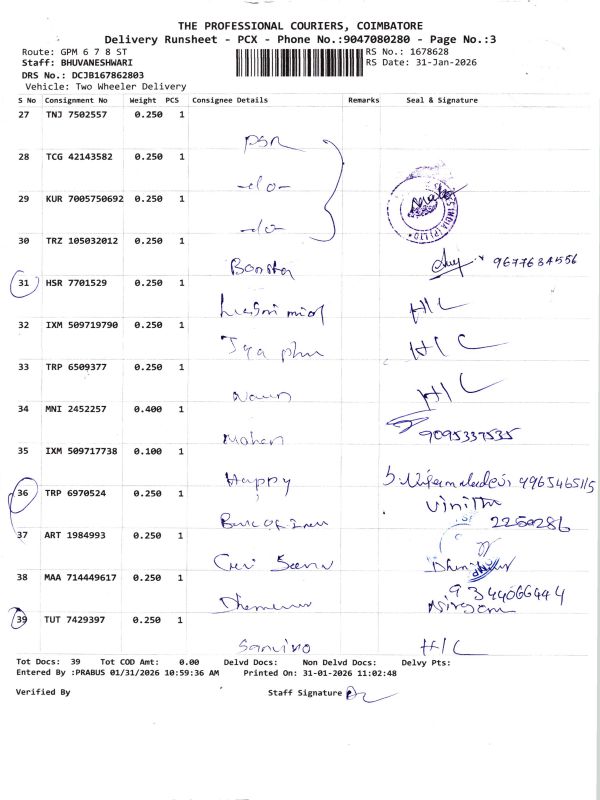 THE PROFESSIONAL COURIERS, COIMBATORE
Delivery Runsheet - PCX - Phone No.:9047080280 - Page No.:3
Route: GPM 6 7 8 ST
RS No.: 1678628
Staff: BHUVANESHWARI
RS Date: 31-Jan-2026
DRS No.: DCJB167862803
Vehicle: Two Wheeler Delivery
S No Consignment No Weight PCS Consignee Details Remarks Seal & Signature
27 TNJ 7502557 0.250 1
PSR
28 TCG 42143582 0.250 1
-do-
29 KUR 7005750692 0.250 1
-do-
30 TRZ 105032012 0.250 1
9677634556
31 HSR 7701529 0.250 1
H/C
32 IXM 509719790 0.250 1
H/C
33 TRP 6509377 0.250 1
H/C
34 MNI 2452257 0.400 1
Mohan 9095337535
35 IXM 509717738 0.100 1
Happy
36 TRP 6970524 0.250 1
Vinitha
2250286
37 ART 1984993 0.250 1
38 MAA 714449617 0.250 1
9344066444
39 TUT 7429397 0.250 1
H/C
Tot Docs: 39 Tot COD Amt: 0.00 Delvd Docs: Non Delvd Docs: Delvy Pts:
Entered By :PRABUS 01/31/2026 10:59:36 AM Printed On: 31-01-2026 11:02:48
Verified By Staff Signature